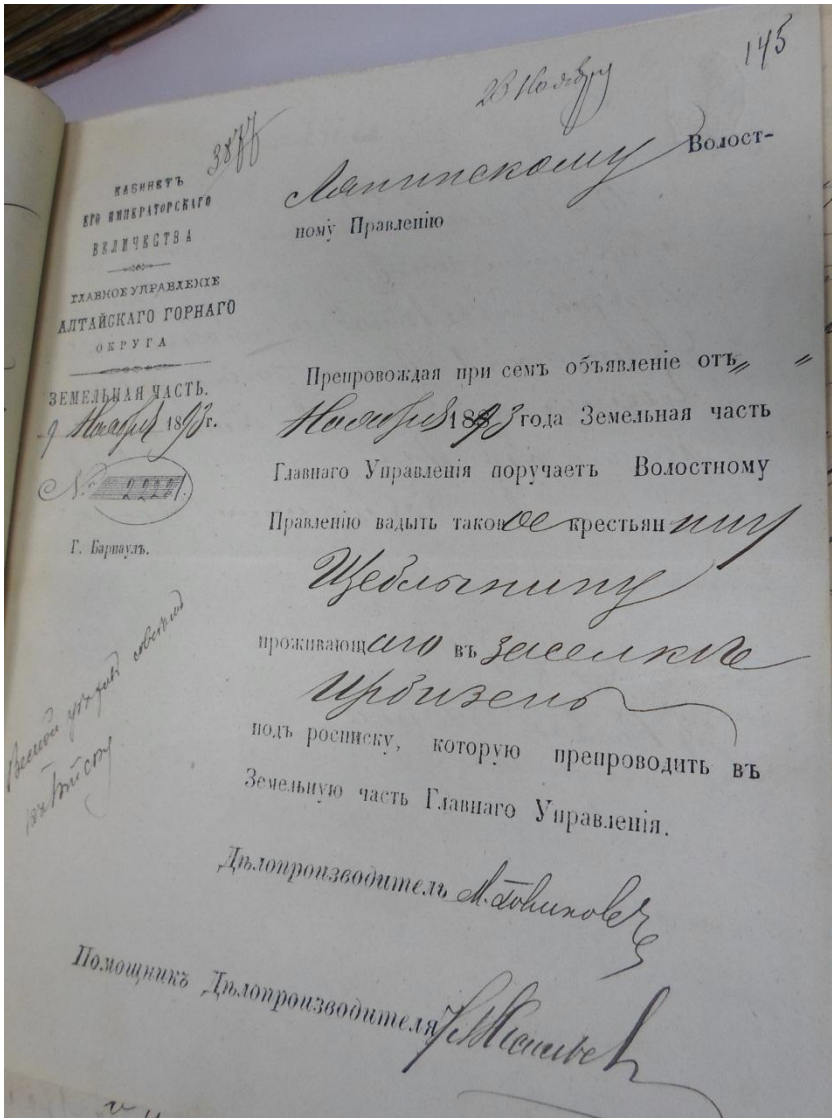 145
23 Ноября
3877
КАБИНЕТЪ
ЕГО ИМПЕРАТОРСКАГО
ВЕЛИЧЕСТВА
ГЛАВНОЕ УПРАВЛЕНІЕ
АЛТАЙСКАГО ГОРНАГО
ОКРУГА
ЗЕМЕЛЬНАЯ ЧАСТЬ.
9 Ноября 1893 г.
№ 2221.
Г. Барнаулъ.
Лянинскому Волост-
ному Правленію
Препровождая при семъ объявленіе отъ „ „
Ноября 1893 года Земельная часть
Главнаго Управленія поручаетъ Волостному
Правленію вадыть таковое крестьянину
Щеблыкину
проживающаго въ заселкѣ
Ирбизень
подъ росписку, которую препроводить въ
Земельную часть Главнаго Управленія.
Дѣлопроизводитель
Помощникъ Дѣлопроизводителя